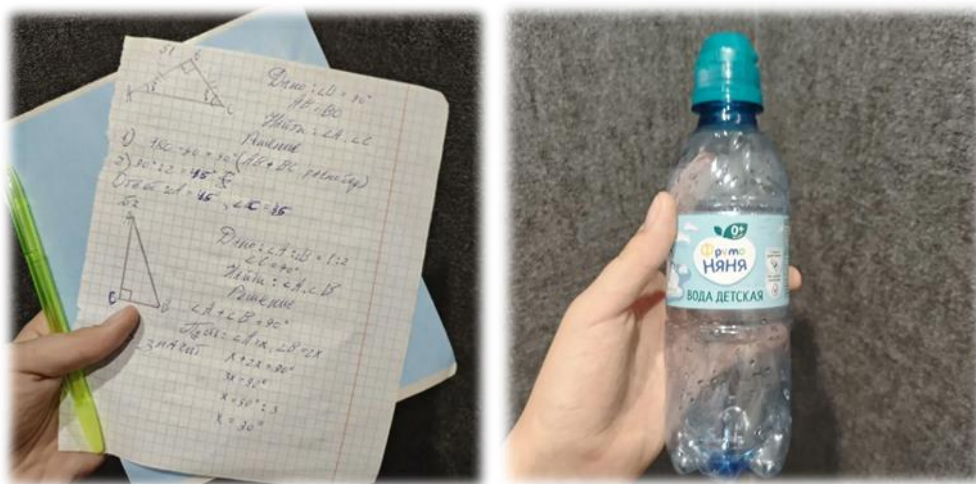 51
B
A
C
Дано: ∠B = 90°
AB = BC
Найти: ∠A, ∠C
Решение
1) 180 - 90 = 90°
2) 90° : 2 = 45°
Ответ: ∠A = 45, ∠C = 45
52
A
C
B
Дано: ∠A:∠B = 1:2
∠C = 90°
Найти: ∠A, ∠B
Решение
∠A + ∠B = 90°
∠A = x, ∠B = 2x
значит
x + 2x = 90°
3x = 90°
x = 90° : 3
x = 30°
0+
Фруто
НЯНЯ
ВОДА ДЕТСКАЯ